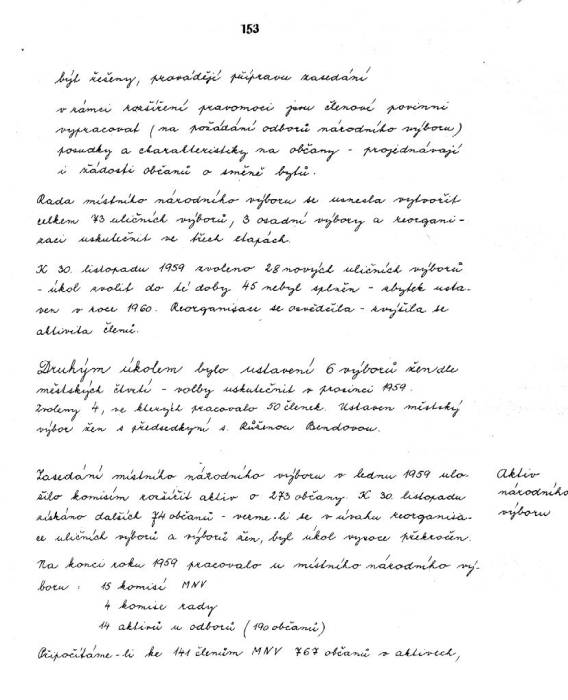 153
být řešeny, provádějí přípravu zasedání
v rámci rozšíření pravomoci jsou členové povinni
vypracovat (na požádání odborů národního výboru)
posudky a charakteristiky na občany - projednávají
i žádosti občanů o směně bytů.
Rada místního národního výboru se usnesla vytvořit
celkem 73 uličních výborů, 3 osadní výbory a reorgani-
zaci uskutečnit ve třech etapách.
K 30. listopadu 1959 zvoleno 28 nových uličních výborů
- úkol zvolit do té doby 45 nebyl splněn - zbytek usta-
ven v roce 1960. Reorganisace se osvědčila - zvýšila se
aktivita členů.
Druhým úkolem bylo ustavení 6 výborů žen dle
městských čtvrtí - volby uskutečnit v prosinci 1959.
Zvoleny 4, ve kterých pracovalo 50 členek. Ustaven městský
výbor žen s předsedkyní s. Růženou Bendovou.
Zasedání místního národního výboru v lednu 1959 ulo-
žilo komisím rozšířit aktiv o 273 občany. K 30. listopadu
získáno dalších 74 občanů - verme-li se v úvahu reorganisa-
ce uličních výborů a výborů žen, byl úkol vysoce překročen.
Aktiv
národního
výboru
Na konci roku 1959 pracovalo u místního národního vý-
boru : 15 komisí MNV
4 komise rady
14 aktivů u odborů (190 občanů)
Připočítáme-li ke 141 členům MNV 767 občanů v aktivech,